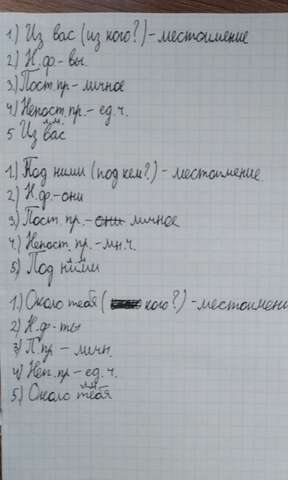 1.) Из вас (из кого?) - местоимение
2) Н.ф - вы.
3.) Пост.пр - личное
4) Непост.пр. - ед.ч.
5 Из вас
л.м.
1.) Под ними (под кем?) - местоимение.
2) Н.ф. - они
3) Пост. пр. - они личное
4.) Непост. пр. - мн.ч.
5) Под ними
1.) Около тебя ( кого?) - местоимени
2) Н.ф - ты
3) П.пр - личн.
4) Неп. пр - ед.ч.
5.) Около тебя